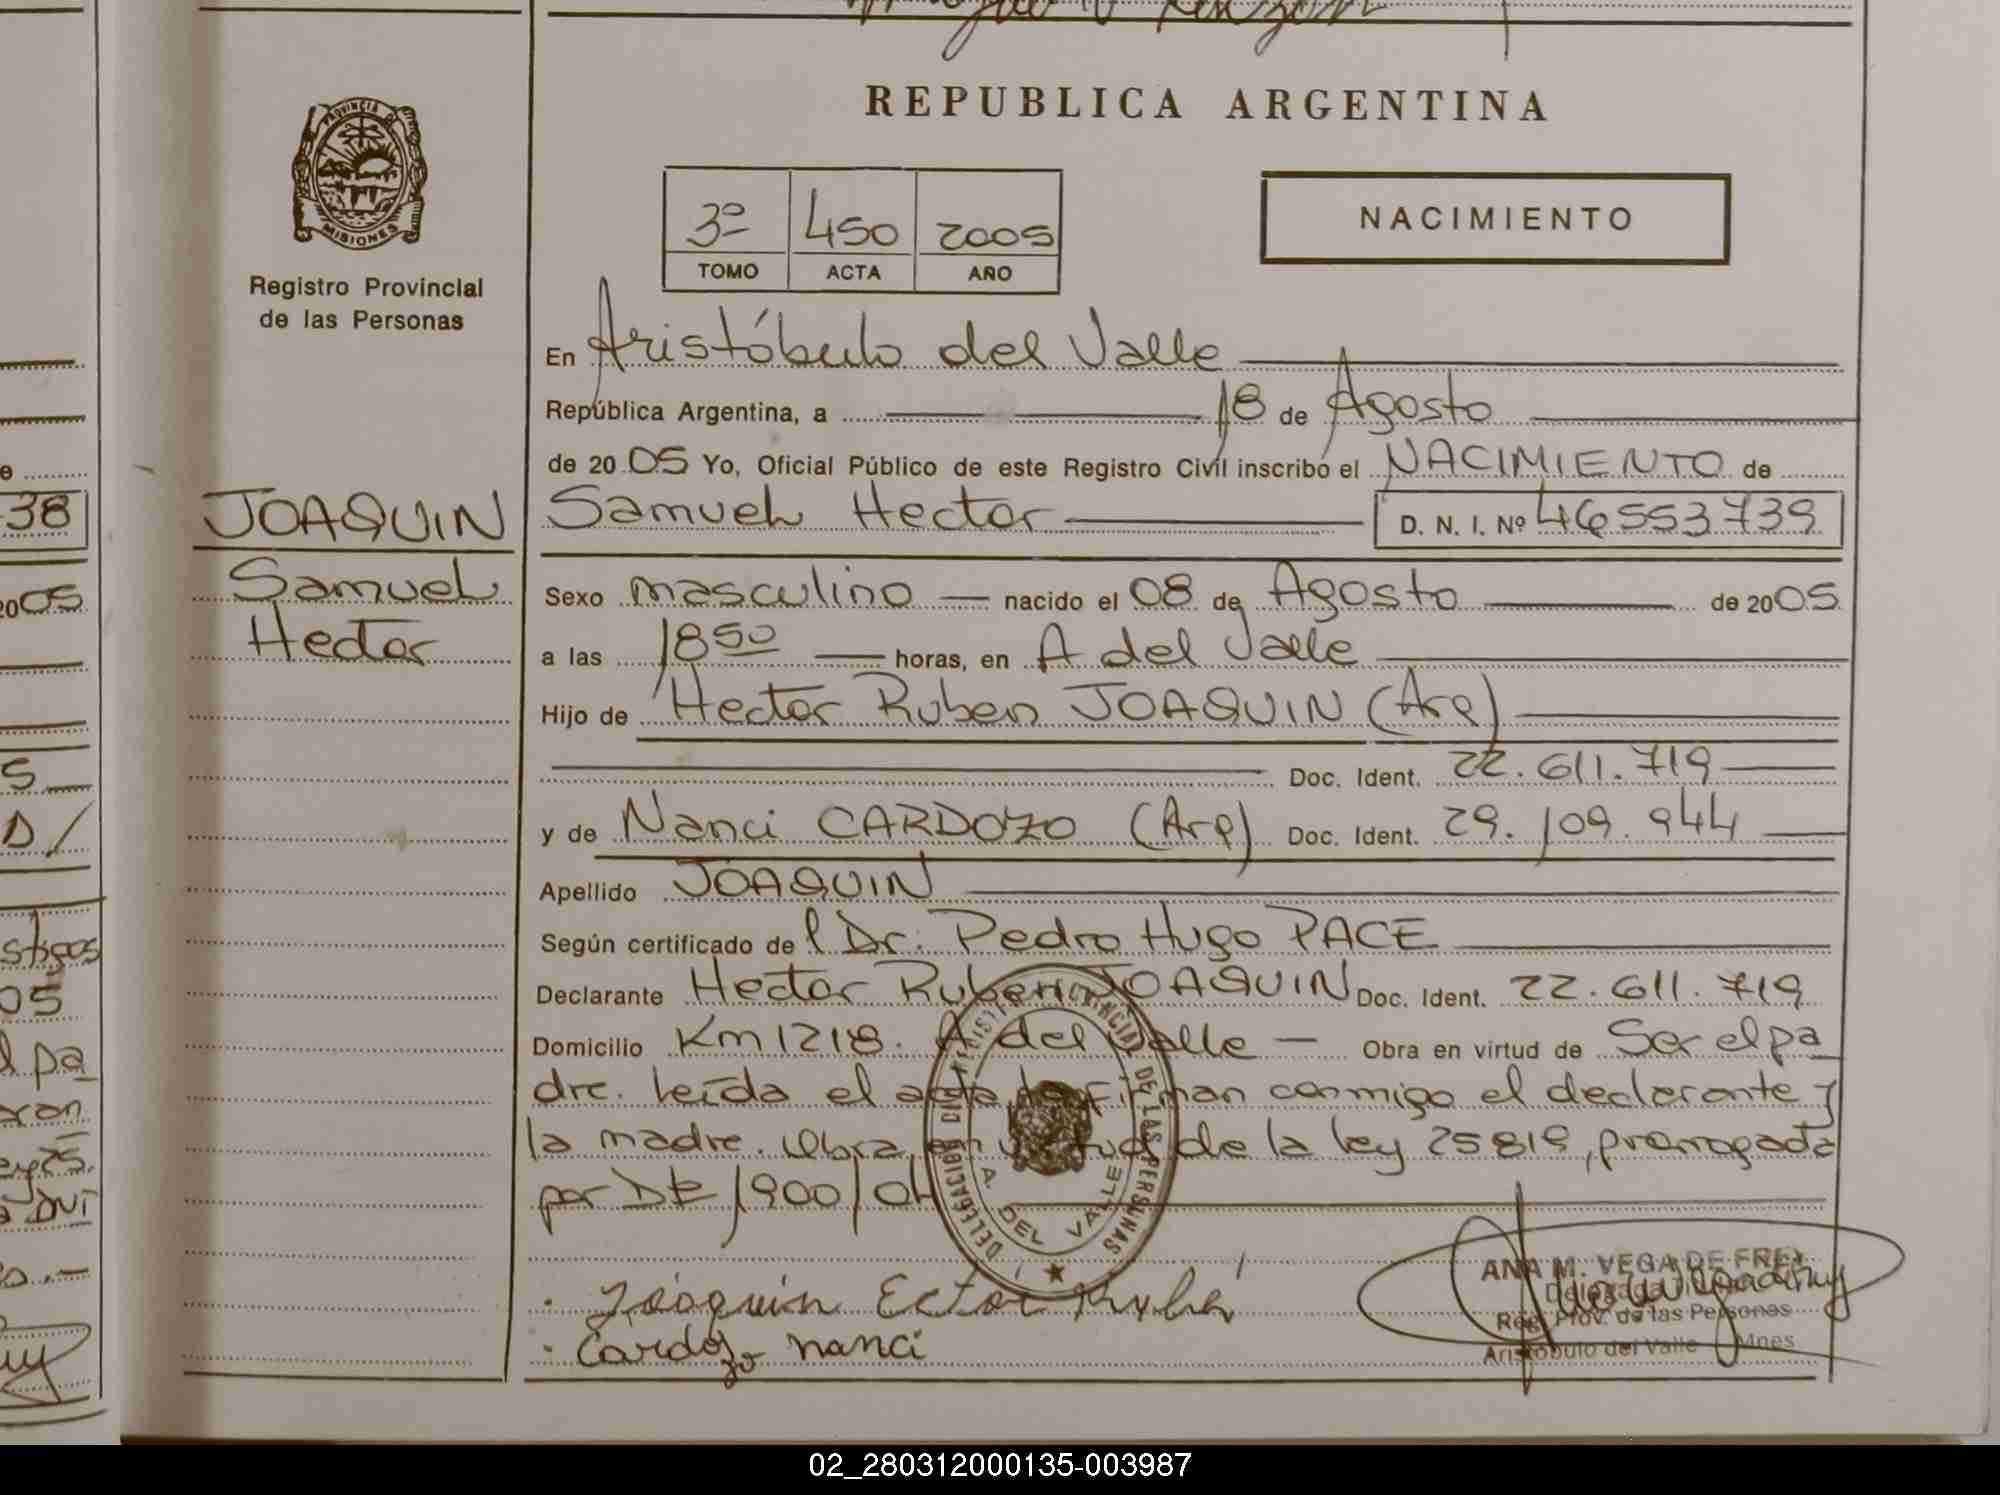 REPUBLICA ARGENTINA
PROVINCIA DE
MISIONES
Registro Provincial
de las Personas
3º 450 2005
TOMO ACTA AÑO
NACIMIENTO
En Aristóbulo del Valle
República Argentina, a 18 de Agosto
de 2005 Yo, Oficial Público de este Registro Civil inscribo el NACIMIENTO de
JOAQUIN
Samuel
Hector
Samuel Hector D. N. I. Nº 46553739
Sexo masculino nacido el 08 de Agosto de 2005
a las 18 50 horas, en A del Valle
Hijo de Hector Ruben JOAQUIN (Arg)
Doc. Ident. 22.611.719
y de Nanci CARDOZO (Arg) Doc. Ident. 29.109.944
Apellido JOAQUIN
Según certificado del Dr. Pedro Hugo PACE
Declarante Hector Ruben JOAQUIN Doc. Ident. 22.611.719
Domicilio Km 1218. A del Valle Obra en virtud de Ser el pa
dre. Leída el acta la firman conmigo el declarante y
la madre. Obra en virtud de la ley 25819, prorrogada
por 1900/04
DELEGACION REGISTRO PROVINCIAL DE LAS PERSONAS
A. DEL VALLE
Joaquin Ector Rubén
Cardozo nanci
ANA M. VEGA DE FREY
Delegada
Reg. Prov. de las Personas
Aristobulo del Valle Mnes
38
2005
5
D/
stigos
05
l pa
ran
ey 25.
DNI
02_280312000135-003987